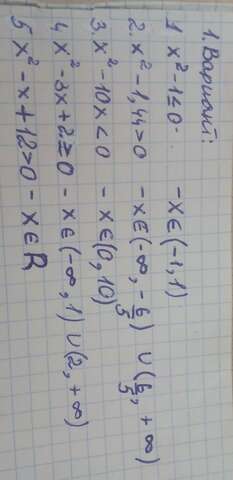 1. Вариант:
1 x² - 1 ≤ 0 - x ∈ (-1, 1)
2. x² - 1,44 > 0 - x ∈ (-∞, -6/5) ∪ (6/5, +∞)
3. x² - 10x < 0 - x ∈ (0, 10)
4. x² - 3x + 2 ≥ 0 - x ∈ (-∞, 1) ∪ (2, +∞)
5 x² - x + 12 > 0 - x ∈ R